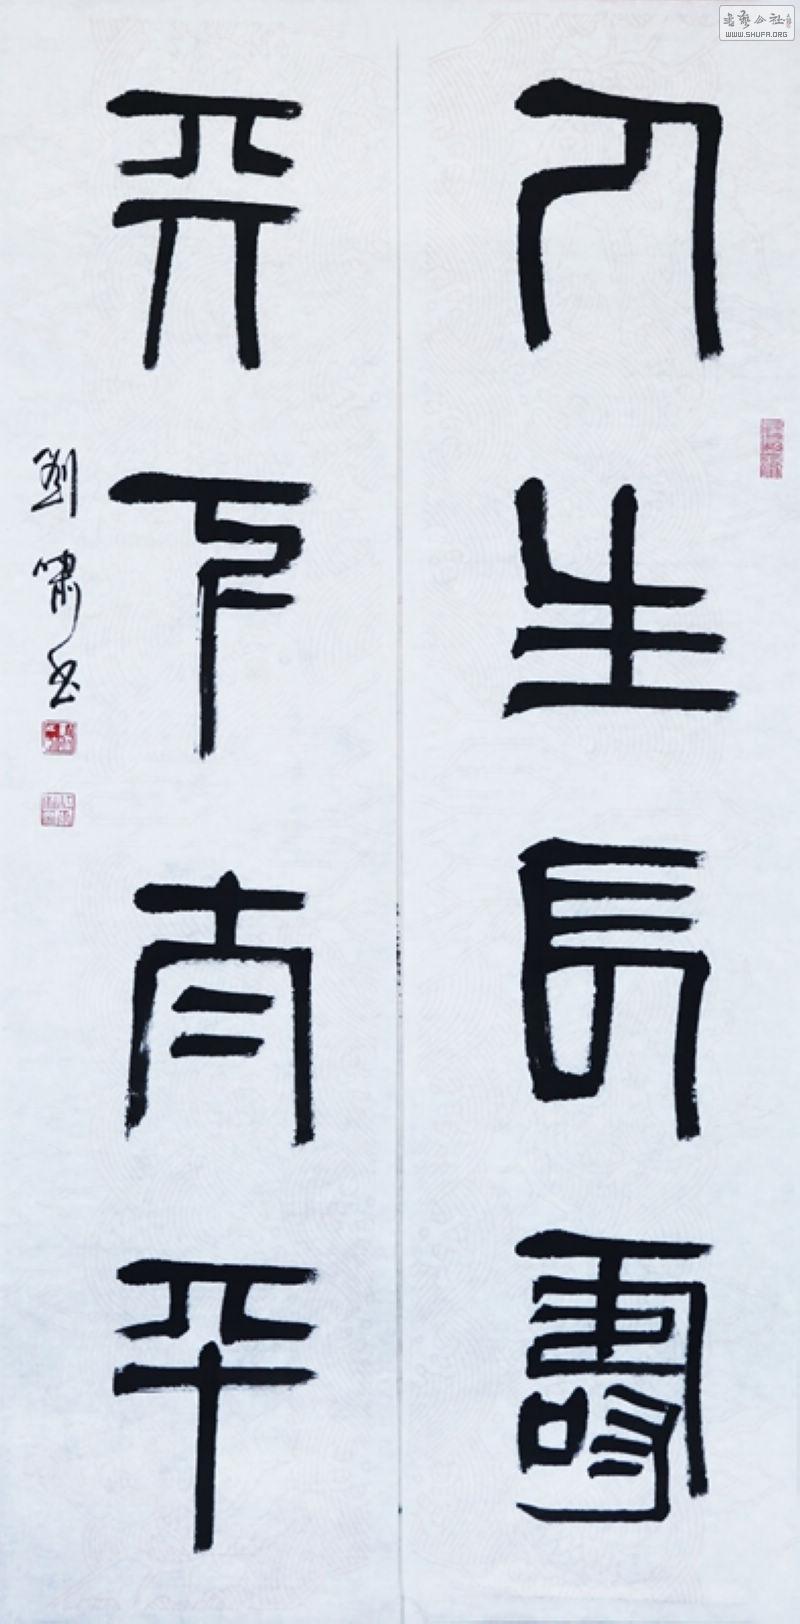 人生長壽
天下太平
劉嘯书
書藝公社
WWW.SHUFA.ORG